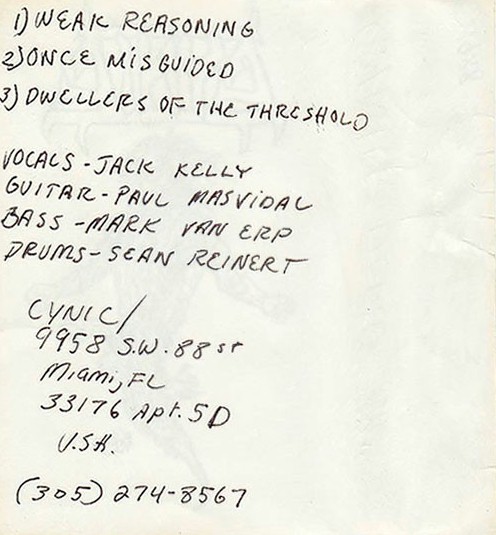 1) WEAK REASONING
2) ONCE MISGUIDED
3) DWELLERS OF THE THRESHOLD
VOCALS - JACK KELLY
GUITAR - PAUL MASVIDAL
BASS - MARK VAN ERP
DRUMS - SEAN REINERT
CYNIC/
9958 S.W. 88 st
Miami, FL
33176 Apt. 5D
U.S.A.
(305) 274-8567